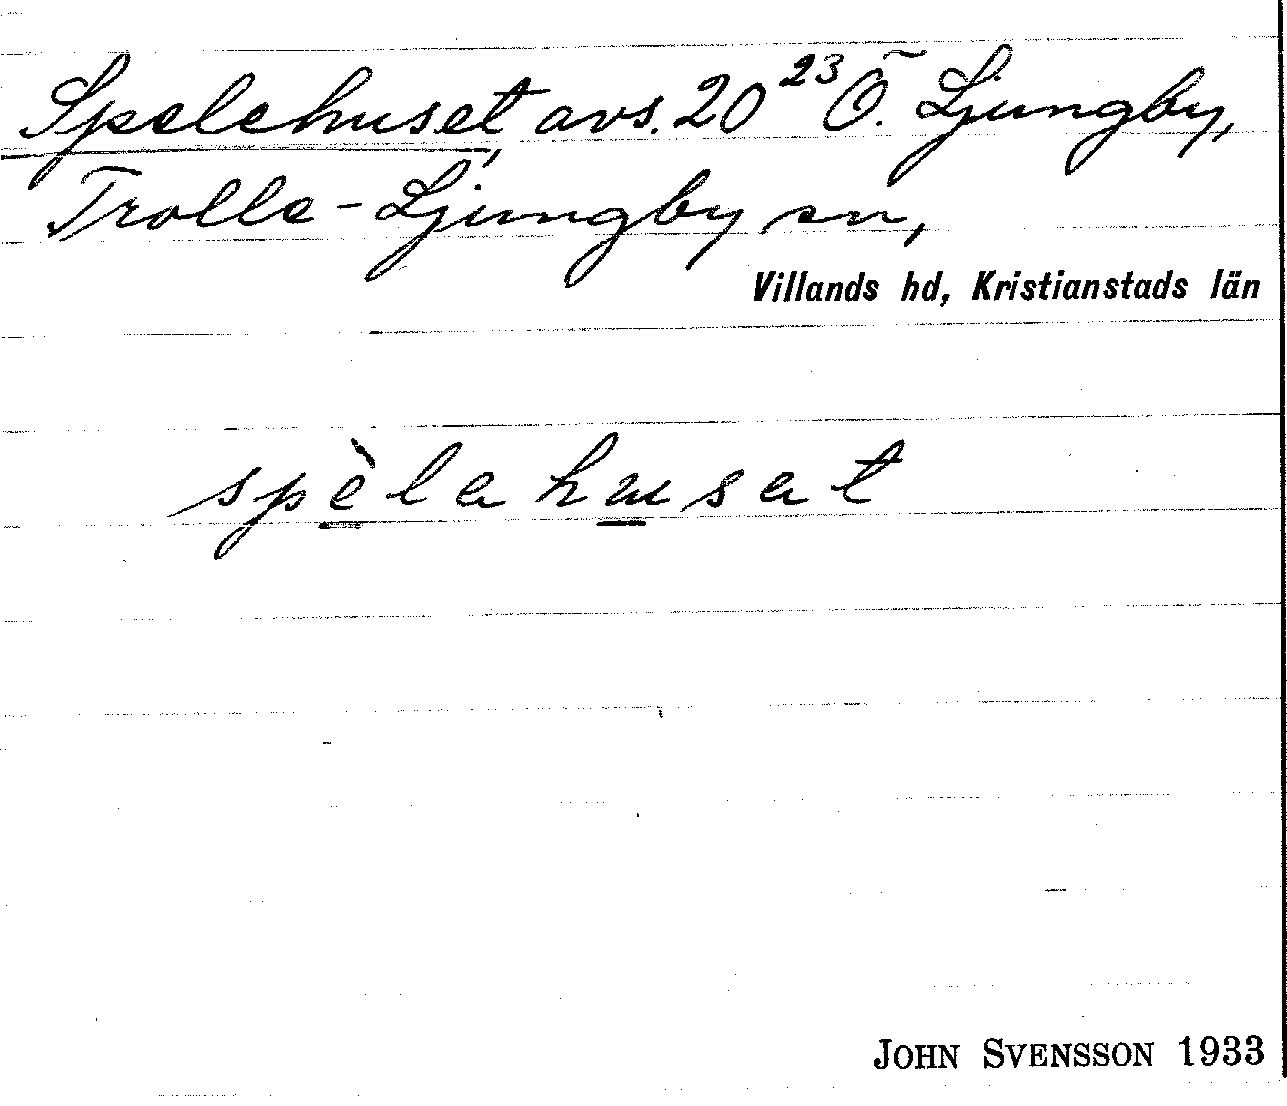 Spelehuset avs. 20²³ Ö. Ljungby,
Trolle-Ljungby sn,
Villands hd, Kristianstads län
spèlahusat
JOHN SVENSSON 1933